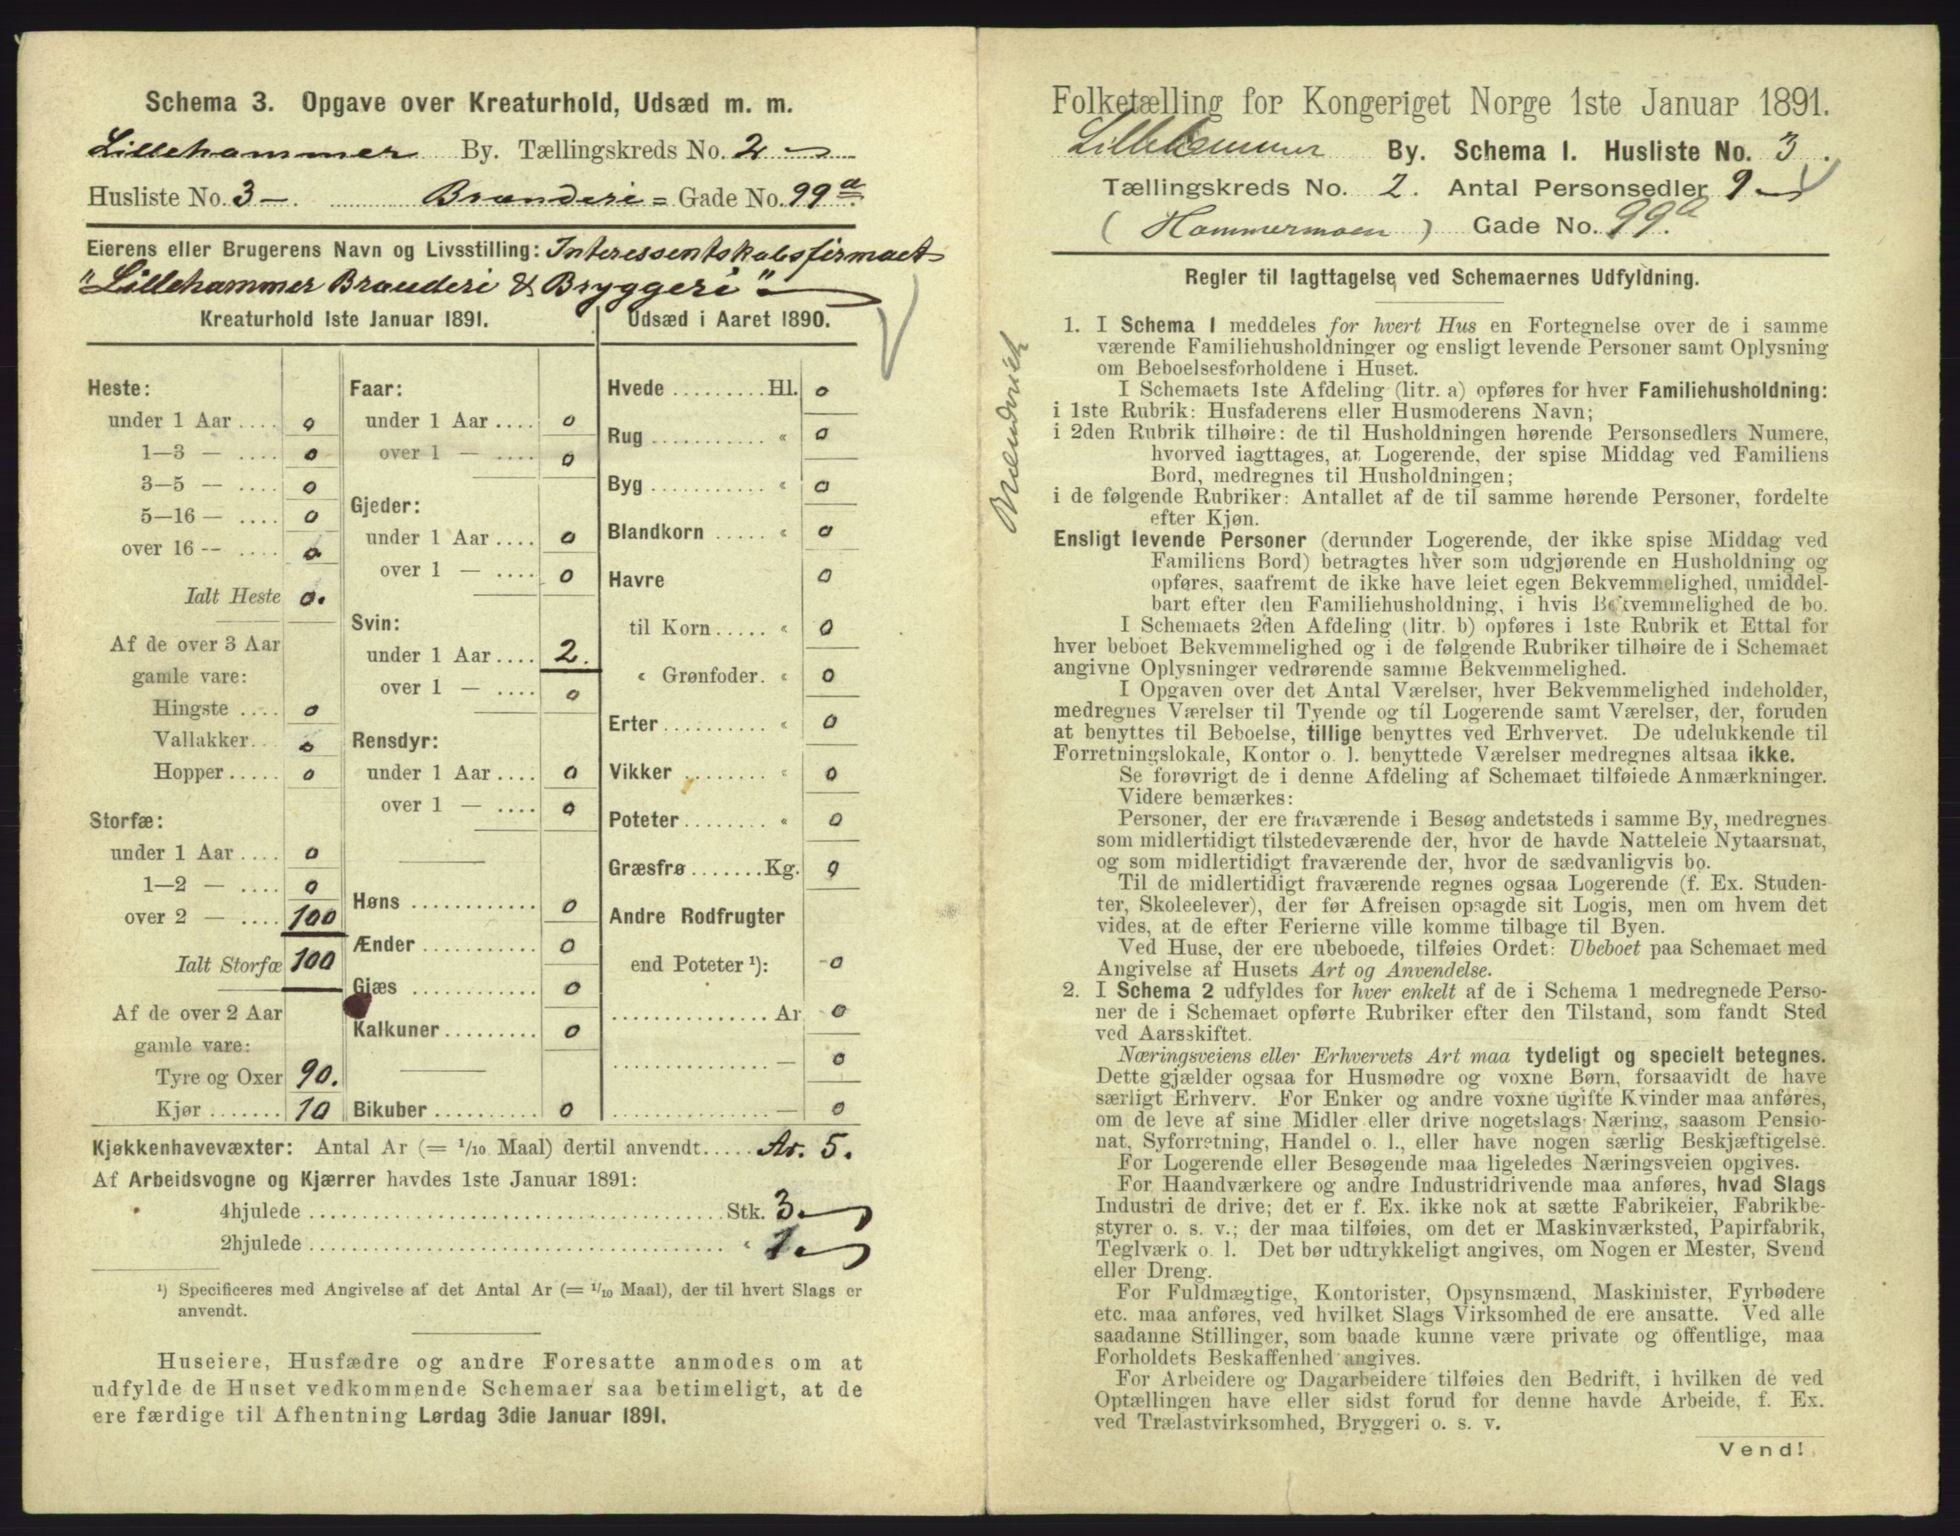 Schema 3. Opgave over Kreaturhold, Udsæd m. m.
Lillehammer By. Tællingskreds No. 2
Husliste No. 3 Brænderi = Gade No. 99a
Eierens eller Brugerens Navn og Livsstilling: Interessentskabsfirmaet
"Lillehammer Brænderi & Bryggeri"
Kreaturhold 1ste Januar 1891.
Heste:
under 1 Aar .... 0
1—3 — .... 0
3—5 — .... 0
5—16 — .... 0
over 16 -- .... 0
Ialt Heste 0.
Af de over 3 Aar
gamle vare:
Hingste .... 0
Vallakker.. 0
Hopper ..... 0
Storfæ:
under 1 Aar .... 0
1—2 — .... 0
over 2 — .... 100
Ialt Storfæ 100
Af de over 2 Aar
gamle vare:
Tyre og Oxer 90.
Kjør ....... 10
Faar:
under 1 Aar .... 0
over 1 — .... 0
Gjeder:
under 1 Aar .... 0
over 1 — .... 0
Svin:
under 1 Aar .... 2.
over 1 — .... 0
Rensdyr:
under 1 Aar .... 0
over 1 — .... 0
Høns ............ 0
Ænder ........... 0
Gjæs ............ 0
Kalkuner ......... 0
Bikuber .......... 0
Udsæd i Aaret 1890.
Hvede ......... Hl. 0
Rug ............ « 0
Byg ............ « 0
Blandkorn ..... « 0
Havre 0
til Korn ..... « 0
« Grønfoder. « 0
Erter .......... « 0
Vikker ........ « 0
Poteter ........ « 0
Græsfrø ....... Kg. 0
Andre Rodfrugter
end Poteter ¹): 0
............... Ar 0
............... — 0
............... — 0
Kjøkkenhavevæxter: Antal Ar (= 1/10 Maal) dertil anvendt..... Ar. 5.
Af Arbeidsvogne og Kjærrer havdes 1ste Januar 1891:
4hjulede .......... Stk. 3
2hjulede .......... « 1
¹) Specificeres med Angivelse af det Antal Ar (= 1/10 Maal), der til hvert Slags er
anvendt.
Huseiere, Husfædre og andre Foresatte anmodes om at
udfylde de Huset vedkommende Schemaer saa betimeligt, at de
ere færdige til Afhentning Lørdag 3die Januar 1891.
Folketælling for Kongeriget Norge 1ste Januar 1891.
Lillehammer By. Schema 1. Husliste No. 3.
Tællingskreds No. 2. Antal Personsedler 9
(Hammermoen) Gade No. 99a.
Regler til Iagttagelse ved Schemaernes Udfyldning.
1. I Schema 1 meddeles for hvert Hus en Fortegnelse over de i samme
værende Familiehusholdninger og ensligt levende Personer samt Oplysning
om Beboelsesforholdene i Huset.
I Schemaets 1ste Afdeling (litr. a) opføres for hver Familiehusholdning:
i 1ste Rubrik: Husfaderens eller Husmoderens Navn;
i 2den Rubrik tilhøire: de til Husholdningen hørende Personsedlers Numere,
hvorved iagttages, at Logerende, der spise Middag ved Familiens
Bord, medregnes til Husholdningen;
i de følgende Rubriker: Antallet af de til samme hørende Personer, fordelte
efter Kjøn.
Ensligt levende Personer (derunder Logerende, der ikke spise Middag ved
Familiens Bord) betragtes hver som udgjørende en Husholdning og
opføres, saafremt de ikke have leiet egen Bekvemmelighed, umiddel-
bart efter den Familiehusholdning, i hvis Bekvemmelighed de bo.
I Schemaets 2den Afdeling (litr. b) opføres i 1ste Rubrik et Ettal for
hver beboet Bekvemmelighed og i de følgende Rubriker tilhøire de i Schemaet
angivne Oplysninger vedrørende samme Bekvemmelighed.
I Opgaven over det Antal Værelser, hver Bekvemmelighed indeholder,
medregnes Værelser til Tyende og til Logerende samt Værelser, der, foruden
at benyttes til Beboelse, tillige benyttes ved Erhvervet. De udelukkende til
Forretningslokale, Kontor o. l. benyttede Værelser medregnes altsaa ikke.
Se forøvrigt de i denne Afdeling af Schemaet tilføiede Anmærkninger.
Videre bemærkes:
Personer, der ere fraværende i Besøg andetsteds i samme By, medregnes
som midlertidigt tilstedeværende der, hvor de havde Natteleie Nytaarsnat,
og som midlertidigt fraværende der, hvor de sædvanligvis bo.
Til de midlertidigt fraværende regnes ogsaa Logerende (f. Ex. Studen-
ter, Skoleelever), der før Afreisen opsagde sit Logis, men om hvem det
vides, at de efter Ferierne ville komme tilbage til Byen.
Ved Huse, der ere ubeboede, tilføies Ordet: Ubeboet paa Schemaet med
Angivelse af Husets Art og Anvendelse.
2. I Schema 2 udfyldes for hver enkelt af de i Schema 1 medregnede Perso-
ner de i Schemaet opførte Rubriker efter den Tilstand, som fandt Sted
ved Aarsskiftet.
Næringsveiens eller Erhvervets Art maa tydeligt og specielt betegnes.
Dette gjælder ogsaa for Husmødre og voxne Børn, forsaavidt de have
særligt Erhverv. For Enker og andre voxne ugifte Kvinder maa anføres,
om de leve af sine Midler eller drive nogetslags Næring, saasom Pensio-
nat, Syforretning, Handel o. l., eller have nogen særlig Beskjæftigelse.
For Logerende eller Besøgende maa ligeledes Næringsveien opgives.
For Haandværkere og andre Industridrivende maa anføres, hvad Slags
Industri de drive; det er f. Ex. ikke nok at sætte Fabrikeier, Fabrikbe-
styrer o. s. v.; der maa tilføies, om det er Maskinværksted, Papirfabrik,
Teglværk o. l. Det bør udtrykkeligt angives, om Nogen er Mester, Svend
eller Dreng.
For Fuldmægtige, Kontorister, Opsynsmænd, Maskinister, Fyrbødere
etc. maa anføres, ved hvilket Slags Virksomhed de ere ansatte. Ved alle
saadanne Stillinger, som baade kunne være private og offentlige, maa
Forholdets Beskaffenhed angives.
For Arbeidere og Dagarbeidere tilføies den Bedrift, i hvilken de ved
Optællingen have eller sidst forud for denne havde Arbeide, f. Ex.
ved Trælastvirksomhed, Bryggeri o. s. v.
Vend!